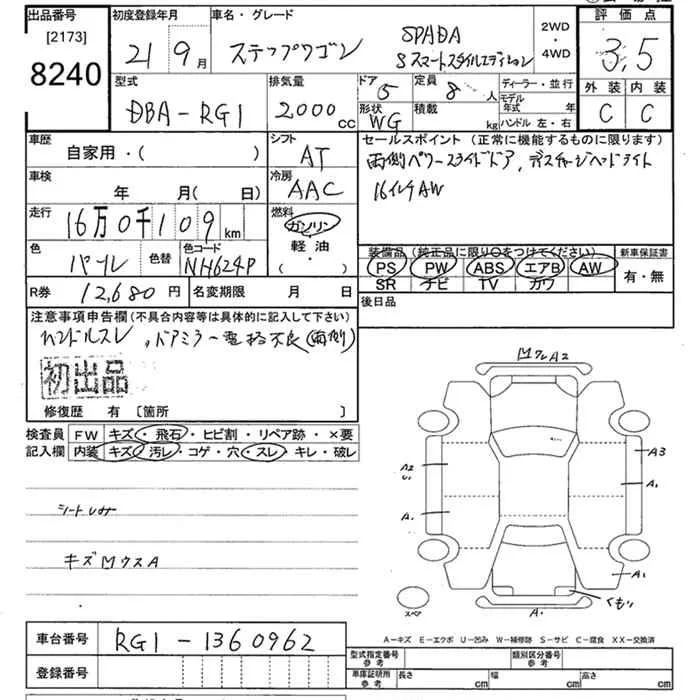 出品番号 初度登録年月 車名・グレード 2WD・4WD 評価点
[2173]
8240
21 9月 ステップワゴン SPADA
Sスマートスタイルエディション
3.5
型式 排気量 ドア 定員 ディーラー・並行 外装 内装
DBA-RG1 2000cc 5 8人 モデル年式 年 C C
形状 積載 ハンドル 左・右
WG kg
車歴 シフト セールスポイント (正常に機能するものに限ります)
自家用・( ) AT 両側パワースライドドア、ディスチャージヘッドライト
車検 冷房 16インチAW
年 月(日) AAC
走行 燃料
16万0千109km ガソリン
軽油
・( )
色 色替 色コード 装備品 (純正品に限り〇をつけてください) 新車保証書
パール NH624P PS PW ABS エアB AW 有・無
SR ナビ TV カワ
R券 12,680円 名変期限 月 日 後日品
注意事項申告欄(不具合内容等は具体的に記入して下さい)
ハンドルスレ、ドアミラー電格不良(両側)
初出品
修復歴 有 〔箇所 〕
検査員 FW キズ・飛石・ヒビ割・リペア跡・×要
記入欄 内装 キズ・汚レ・コゲ・穴・スレ・キレ・破レ
A2
A3
A2
A.
A.
A.
A1
シート
キズ
くもり
A.
スペア
A-キズ E-エクボ U-凹み W-補修跡 S-サビ C-腐食 XX-交換済
車台番号 RG1-1360962
登録番号
型式指定番号 参考 類別区分番号 参考
車庫証明用 参考 長さ cm 幅 cm 高さ cm